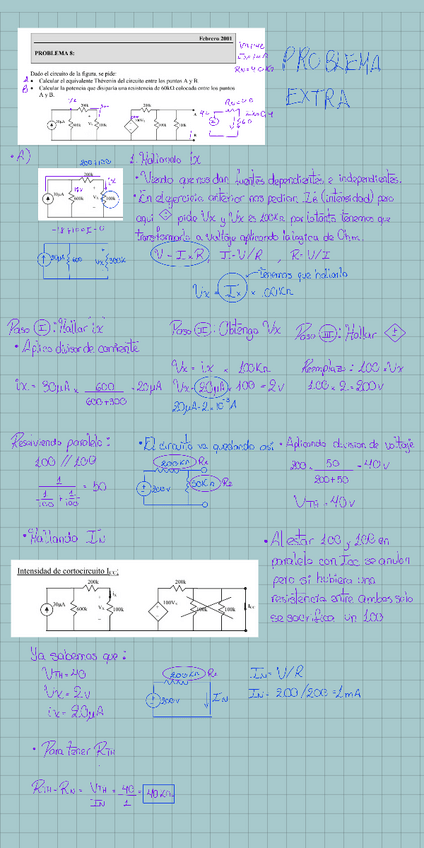 Febrero 2001
PROBLEMA 8:
Dado el circuito de la figura, se pide:
A • Calcular el equivalente Thévenin del circuito entre los puntos A y B.
B • Calcular la potencia que disiparía una resistencia de 60kΩ colocada entre los puntos
A y B.
PROBLEMA
EXTRA
• A)
1. Hallando ix
• Viendo que nos dan fuentes dependientes e independientes.
• En el ejercicio anterior nos pedían IR (intensidad) pero
aquí pide Vx y Vx es 100KΩ por lo tanto tenemos que
transformarlo a voltaje aplicando la lógica de Ohm.
V = I x R, I = V/R, R = V/I
tenemos que hallarlo
Vx = Ix x 100KΩ
Paso I: Hallar ix
• Aplico divisor de corriente
ix = 30μA x 600 / 600+300 = 20μA
Paso II: Obtengo Vx
Vx = ix x 100KΩ
Vx = 20μA x 100 = 2V
Paso III: Hallar
Remplazo: 100 · Vx
100 x 2 = 200V
Resolviendo paralelo:
100 // 100
1 / 1/100 + 1/100 = 50
• El circuito va quedando así
200KΩ R1
200V
50KΩ R2
• Aplicando division de voltaje
200 x 50 / 200+50 = 40V
VTH = 40V
• Hallando IN
• Al estar 100 y 100 en
paralelo con Icc se anulan
pero si hubiera una
resistencia entre ambas solo
se sacrifica un 100
Intensidad de cortocircuito ICC:
200k
200k
30μA
600k
Vx
100k
100Vx
100k
100k
Ya sabemos que:
VTH = 40
Vx = 2V
ix = 20μA
200KΩ R1
200V
IN
IN = V/R
IN = 200/200 = 1mA
• Para tener RTH
RTH = RN = VTH / IN = 40 / 1 = 40KΩ